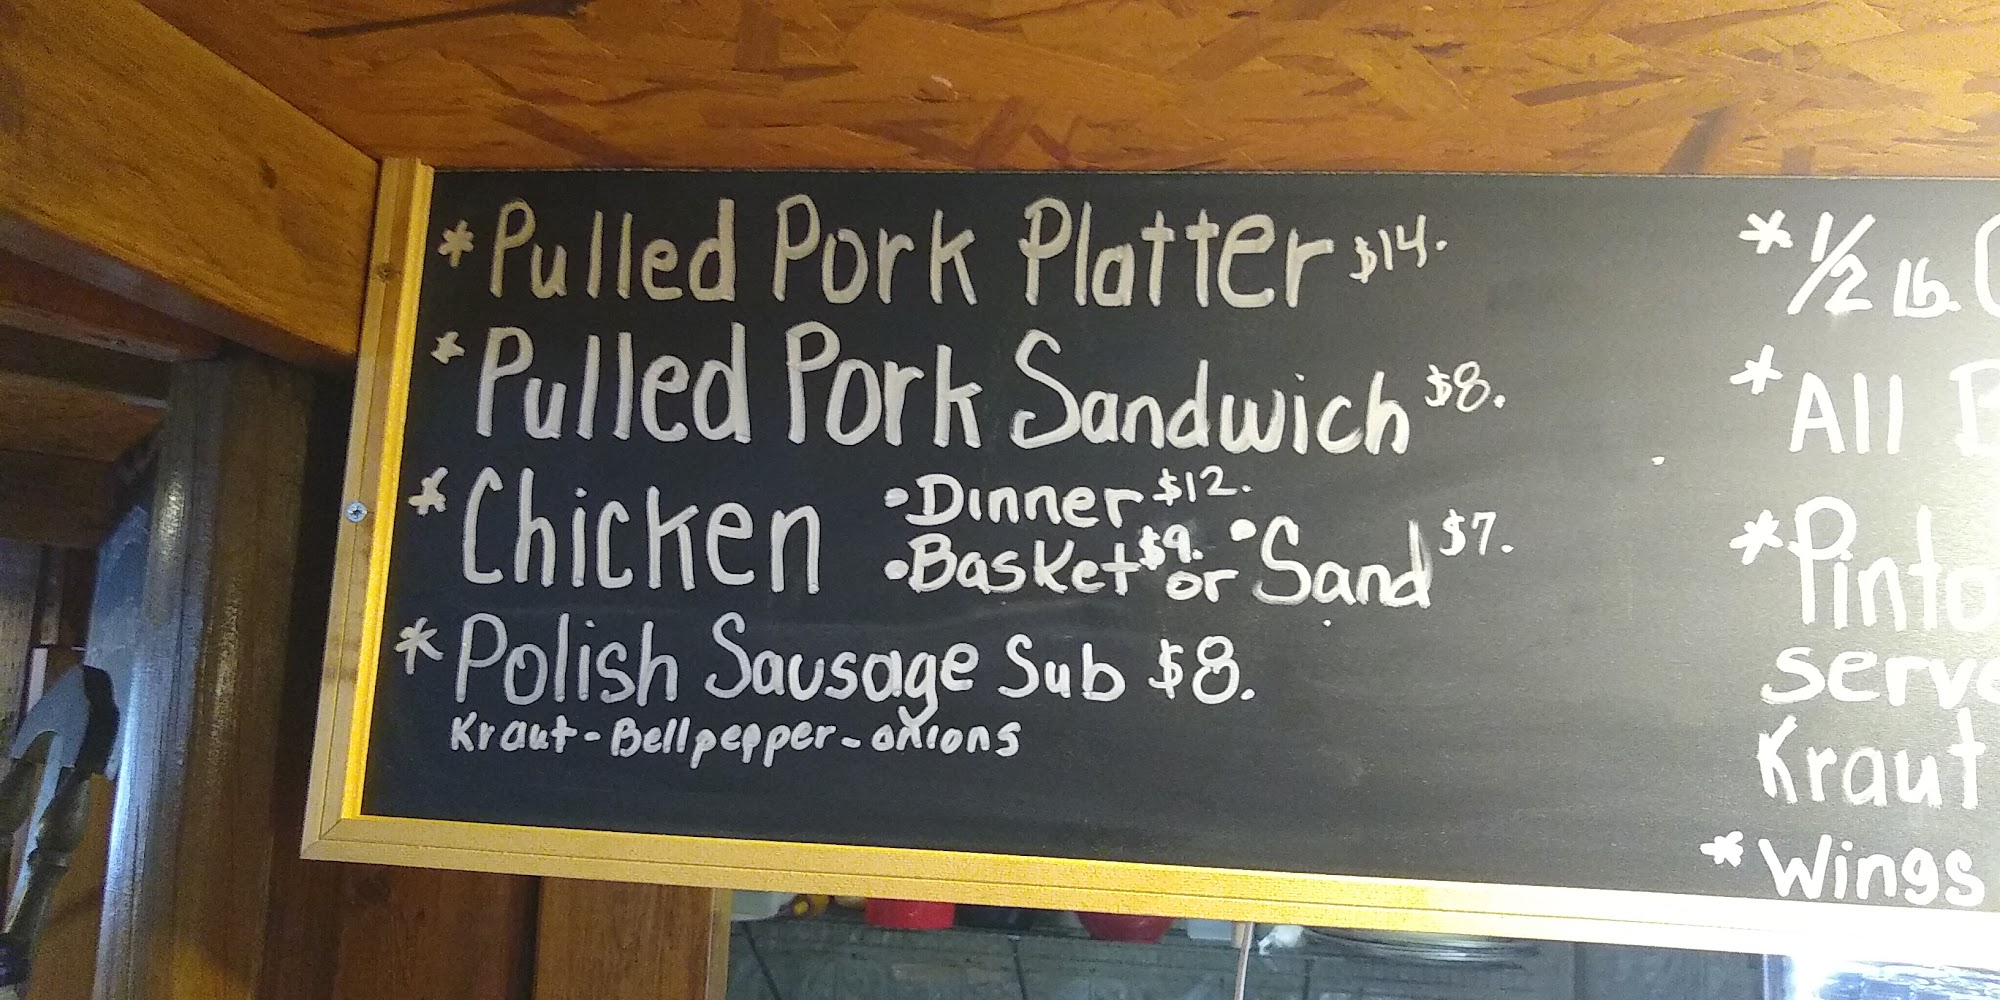 * Pulled Pork Platter $14.
* Pulled Pork Sandwich $8.
* Chicken
• Dinner $12.
• Basket $9. or • Sand $7.
* Polish Sausage Sub $8.
Kraut - Bellpepper - onions
* 1/2 lb.
* All
* Pinto
serve
Kraut
* Wings